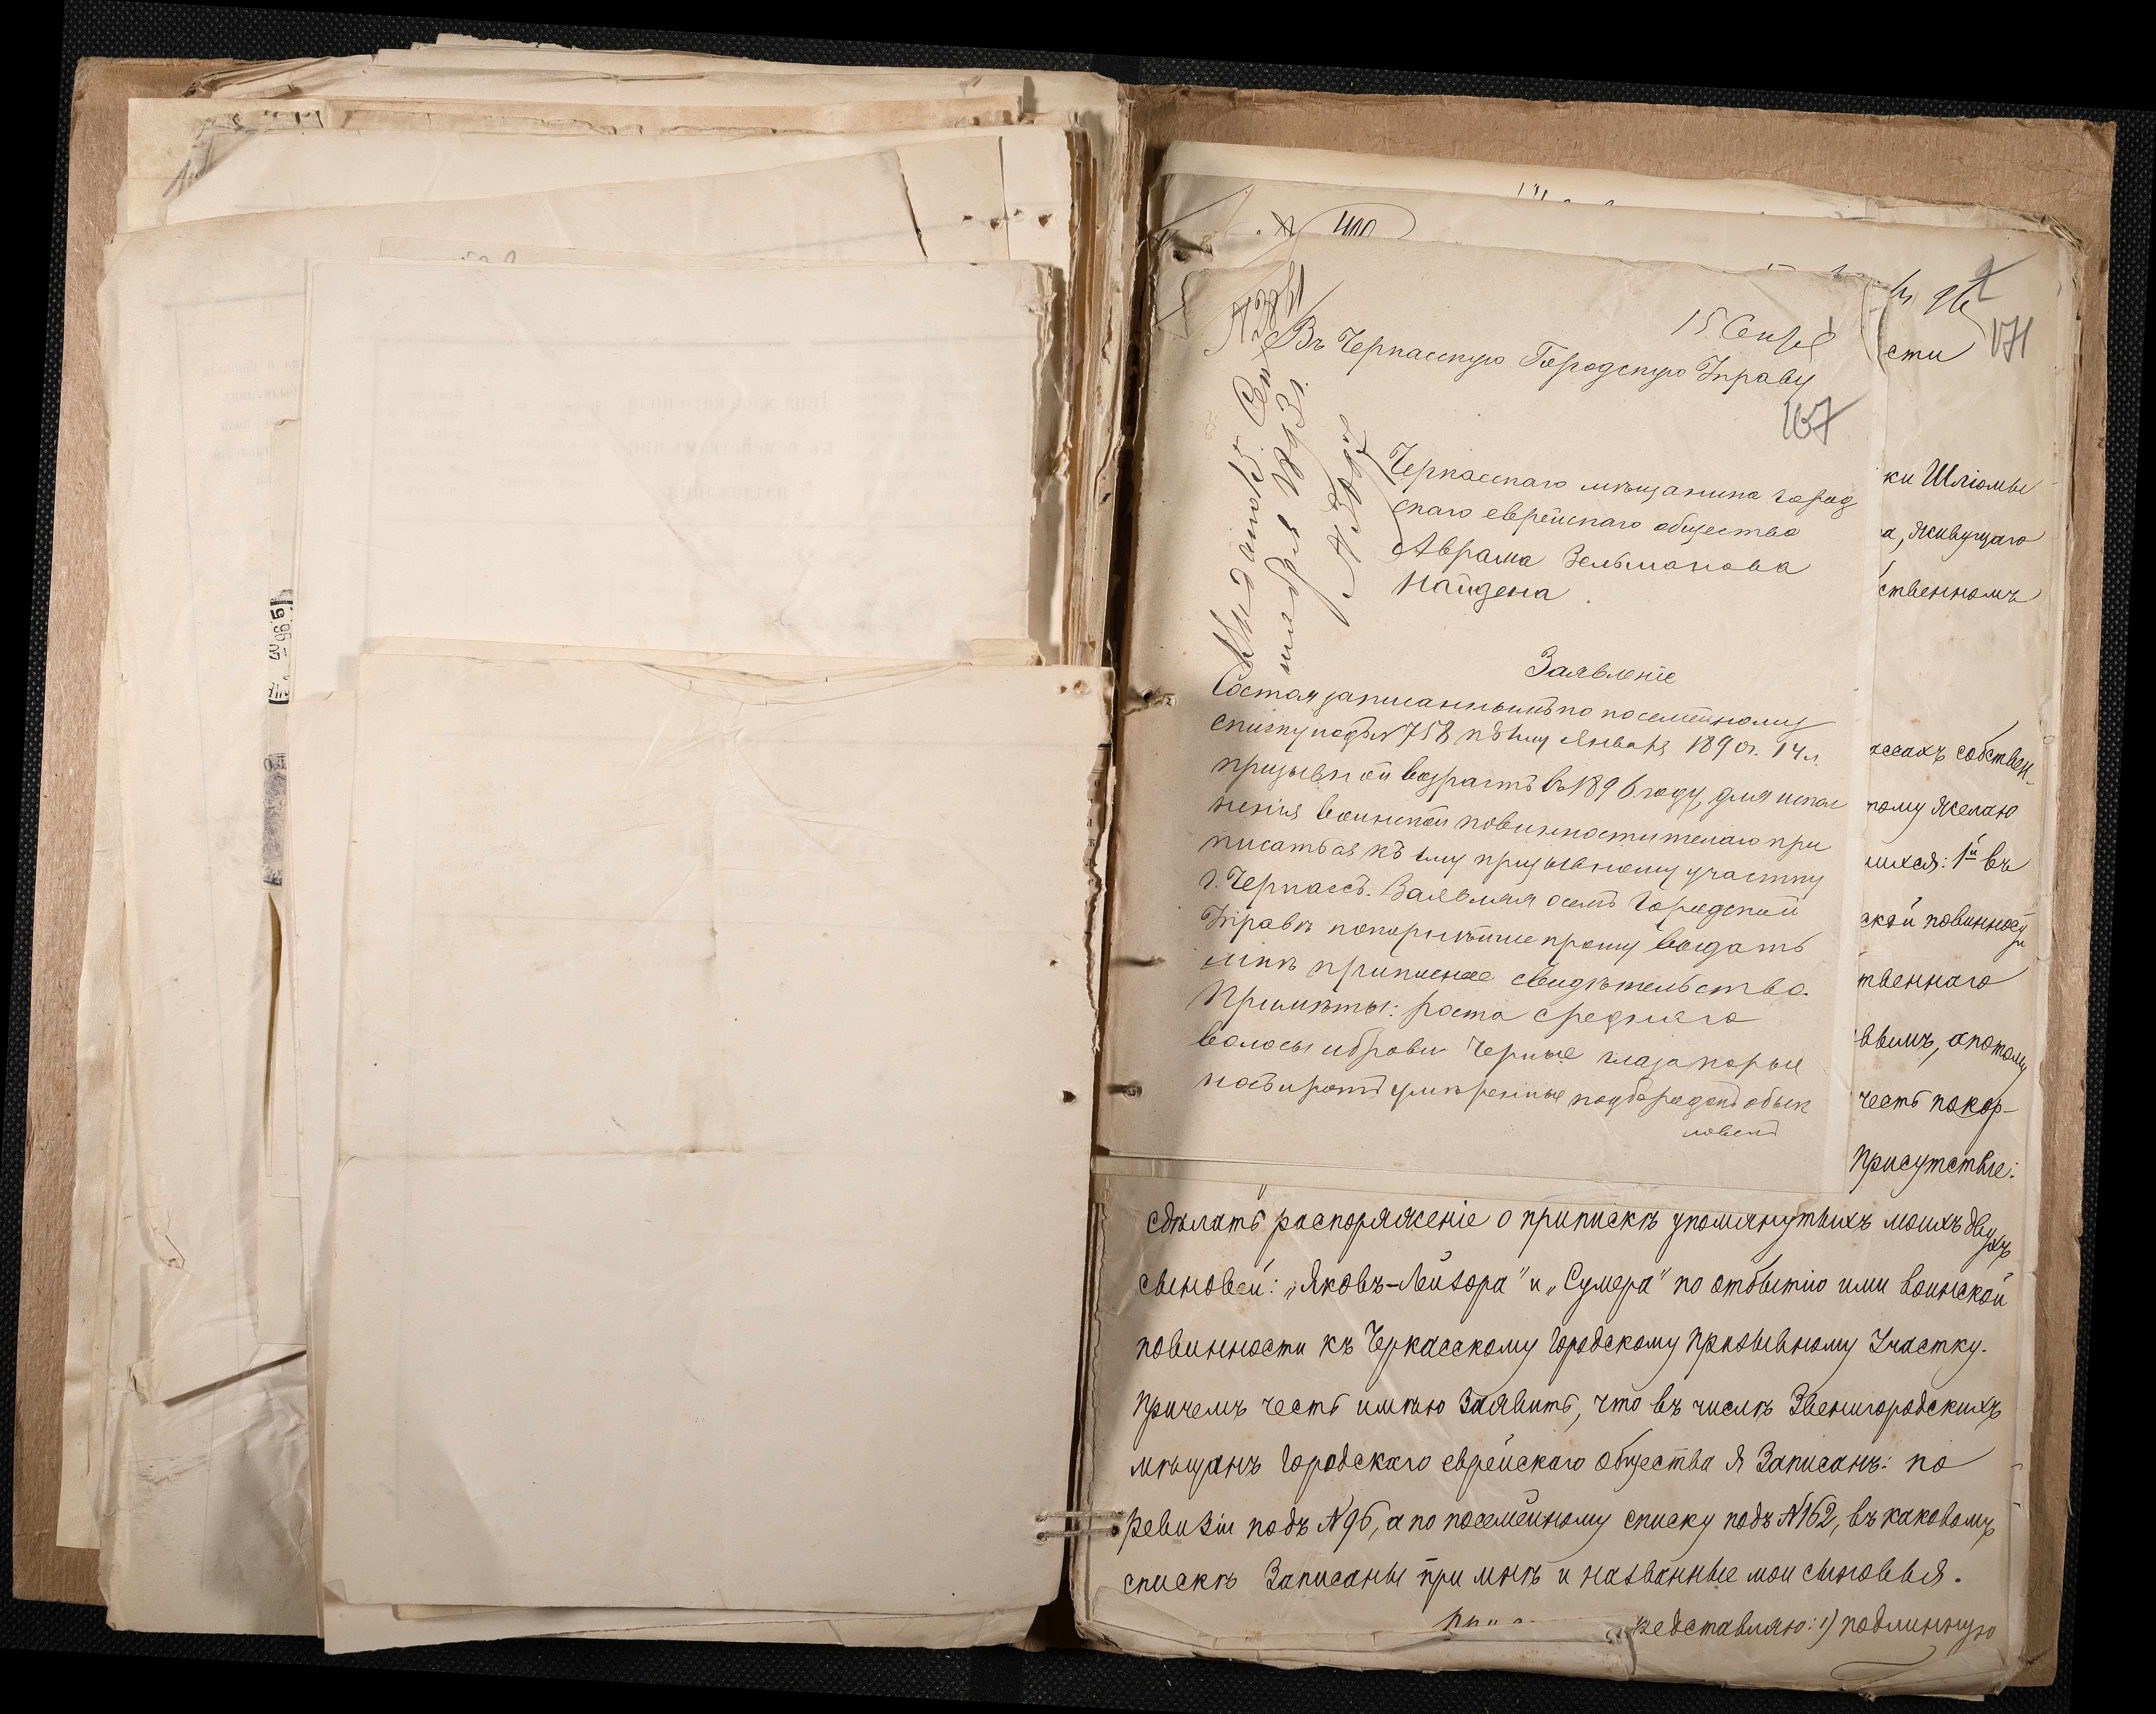 15 Сентяб
Въ Черкасскую Городскую Управу
167
171
Черкасскаго мѣщанина город
скаго еврейскаго общества
Аврама Зельманова
Найдена
Заявленіе
Состоя записаннымъ по посемейному
списку подъ №758 къ 1му Января 1890г. 14 л.
призывной возрастъ въ 1896 году, для испол
ненія воинской повинности желаю при
писаться къ 1му призывному участку
г. Черкассъ. Заявляя о семъ Городской
Управѣ покорнѣйше прошу выдать
мнѣ приписное свидѣтельство.
Примѣты: роста средняго
волосы и брови черные глаза карые
носъ и ротъ умѣренные подбородокъ обык
новен
сти
ки Шліомы
а, живущаго
ственномъ
ассахъ собствен-
тому желаю
шихся: 1й въ
ской повинности
твеннаго
вымъ, а потому
честь покор-
Присутствіе:
сдѣлать распоряженіе о припискѣ упомянутыхъ моихъ двухъ
сыновей: „Яковъ-Лейзора" и „Сумера" по отбытію ими воинской
повинности къ Черкасскому Городскому Призывному Участку.
Причемъ честь имѣю заявить, что въ числѣ Звенигородскихъ
мѣщанъ Городскаго еврейскаго общества я записанъ: по
Ревизіи подъ №96, а по посемейному списку подъ №162, въ каковомъ
спискѣ записаны при мнѣ и названные мои сыновья.
редставляю: 1) подлинную